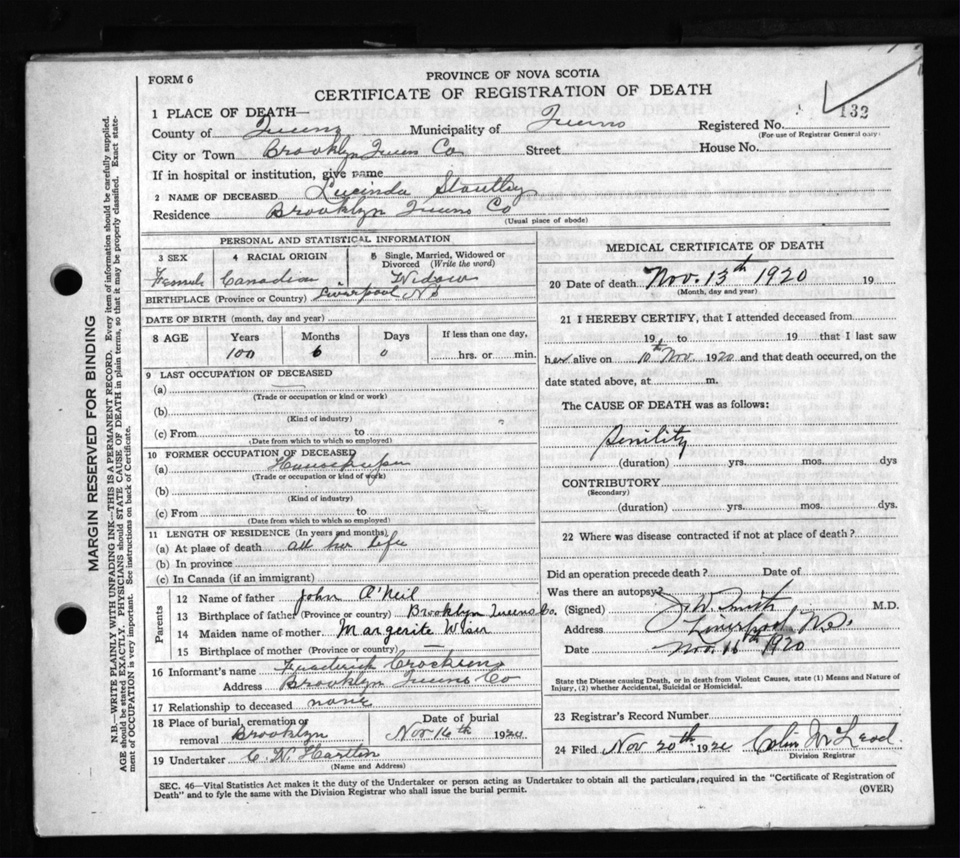 FORM 6
PROVINCE OF NOVA SCOTIA
CERTIFICATE OF REGISTRATION OF DEATH
132
1 PLACE OF DEATH—
County of Queens Municipality of Queens Registered No.
(For use of Registrar General only)
City or Town Brooklyn Queens Co Street House No.
If in hospital or institution, give name
2 NAME OF DECEASED Lucinda
Residence Brooklyn Queens Co
(Usual place of abode)
PERSONAL AND STATISTICAL INFORMATION
3 SEX 4 RACIAL ORIGIN 5 Single, Married, Widowed or Divorced (Write the word)
Female Canadian Widow
BIRTHPLACE (Province or Country) Liverpool N.S
DATE OF BIRTH (month, day and year)
8 AGE Years Months Days If less than one day,
100 6 0 hrs. or min.
9 LAST OCCUPATION OF DECEASED
(a) —
(Trade or occupation or kind or work)
(b)
(Kind of industry)
(c) From to
(Date from which to which so employed)
10 FORMER OCCUPATION OF DECEASED
(a) Housekeeper
(Trade or occupation or kind of work)
(b)
(Kind of industry)
(c) From to
(Date from which to which so employed)
11 LENGTH OF RESIDENCE (In years and months)
(a) At place of death all her life
(b) In province
(c) In Canada (if an immigrant)
Parents
12 Name of father John O'Neil
13 Birthplace of father (Province or country) Brooklyn Queens Co.
14 Maiden name of mother Margerite Wiser
15 Birthplace of mother (Province or country) —
16 Informant's name Frederick
Address Brooklyn Queens Co
17 Relationship to deceased none
18 Place of burial, cremation or removal Brooklyn Date of burial Nov 16th 1920
19 Undertaker C. N.
(Name and Address)
MEDICAL CERTIFICATE OF DEATH
20 Date of death Nov. 13th 1920 19
(Month, day and year)
21 I HEREBY CERTIFY, that I attended deceased from
19 to 19 that I last saw
her alive on 10th Nov. 1920 and that death occurred, on the
date stated above, at m.
The CAUSE OF DEATH was as follows:
Senility
(duration) yrs. mos. dys
CONTRIBUTORY
(Secondary)
(duration) yrs. mos. dys.
22 Where was disease contracted if not at place of death?
Did an operation precede death? Date of
Was there an autopsy?
(Signed) J W Smith M.D.
Address Liverpool N.S.
Date Nov. 16th 1920
State the Disease causing Death, or in death from Violent Causes, state (1) Means and Nature of
Injury, (2) whether Accidental, Suicidal or Homicidal.
23 Registrar's Record Number
24 Filed Nov 20th 1920 Colin McLeod
Division Registrar
SEC. 46—Vital Statistics Act makes it the duty of the Undertaker or person acting as Undertaker to obtain all the particulars, required in the "Certificate of Registration of
Death" and to fyle the same with the Division Registrar who shall issue the burial permit.
(OVER)
MARGIN RESERVED FOR BINDING
N.B.—WRITE PLAINLY WITH UNFADING INK—THIS IS A PERMANENT RECORD. Every item of information should be carefully supplied.
AGE should be stated EXACTLY. PHYSICIANS should STATE CAUSE OF DEATH in plain terms, so that it may be properly classified. Exact state-
ment of OCCUPATION is very important. See instructions on back of Certificate.